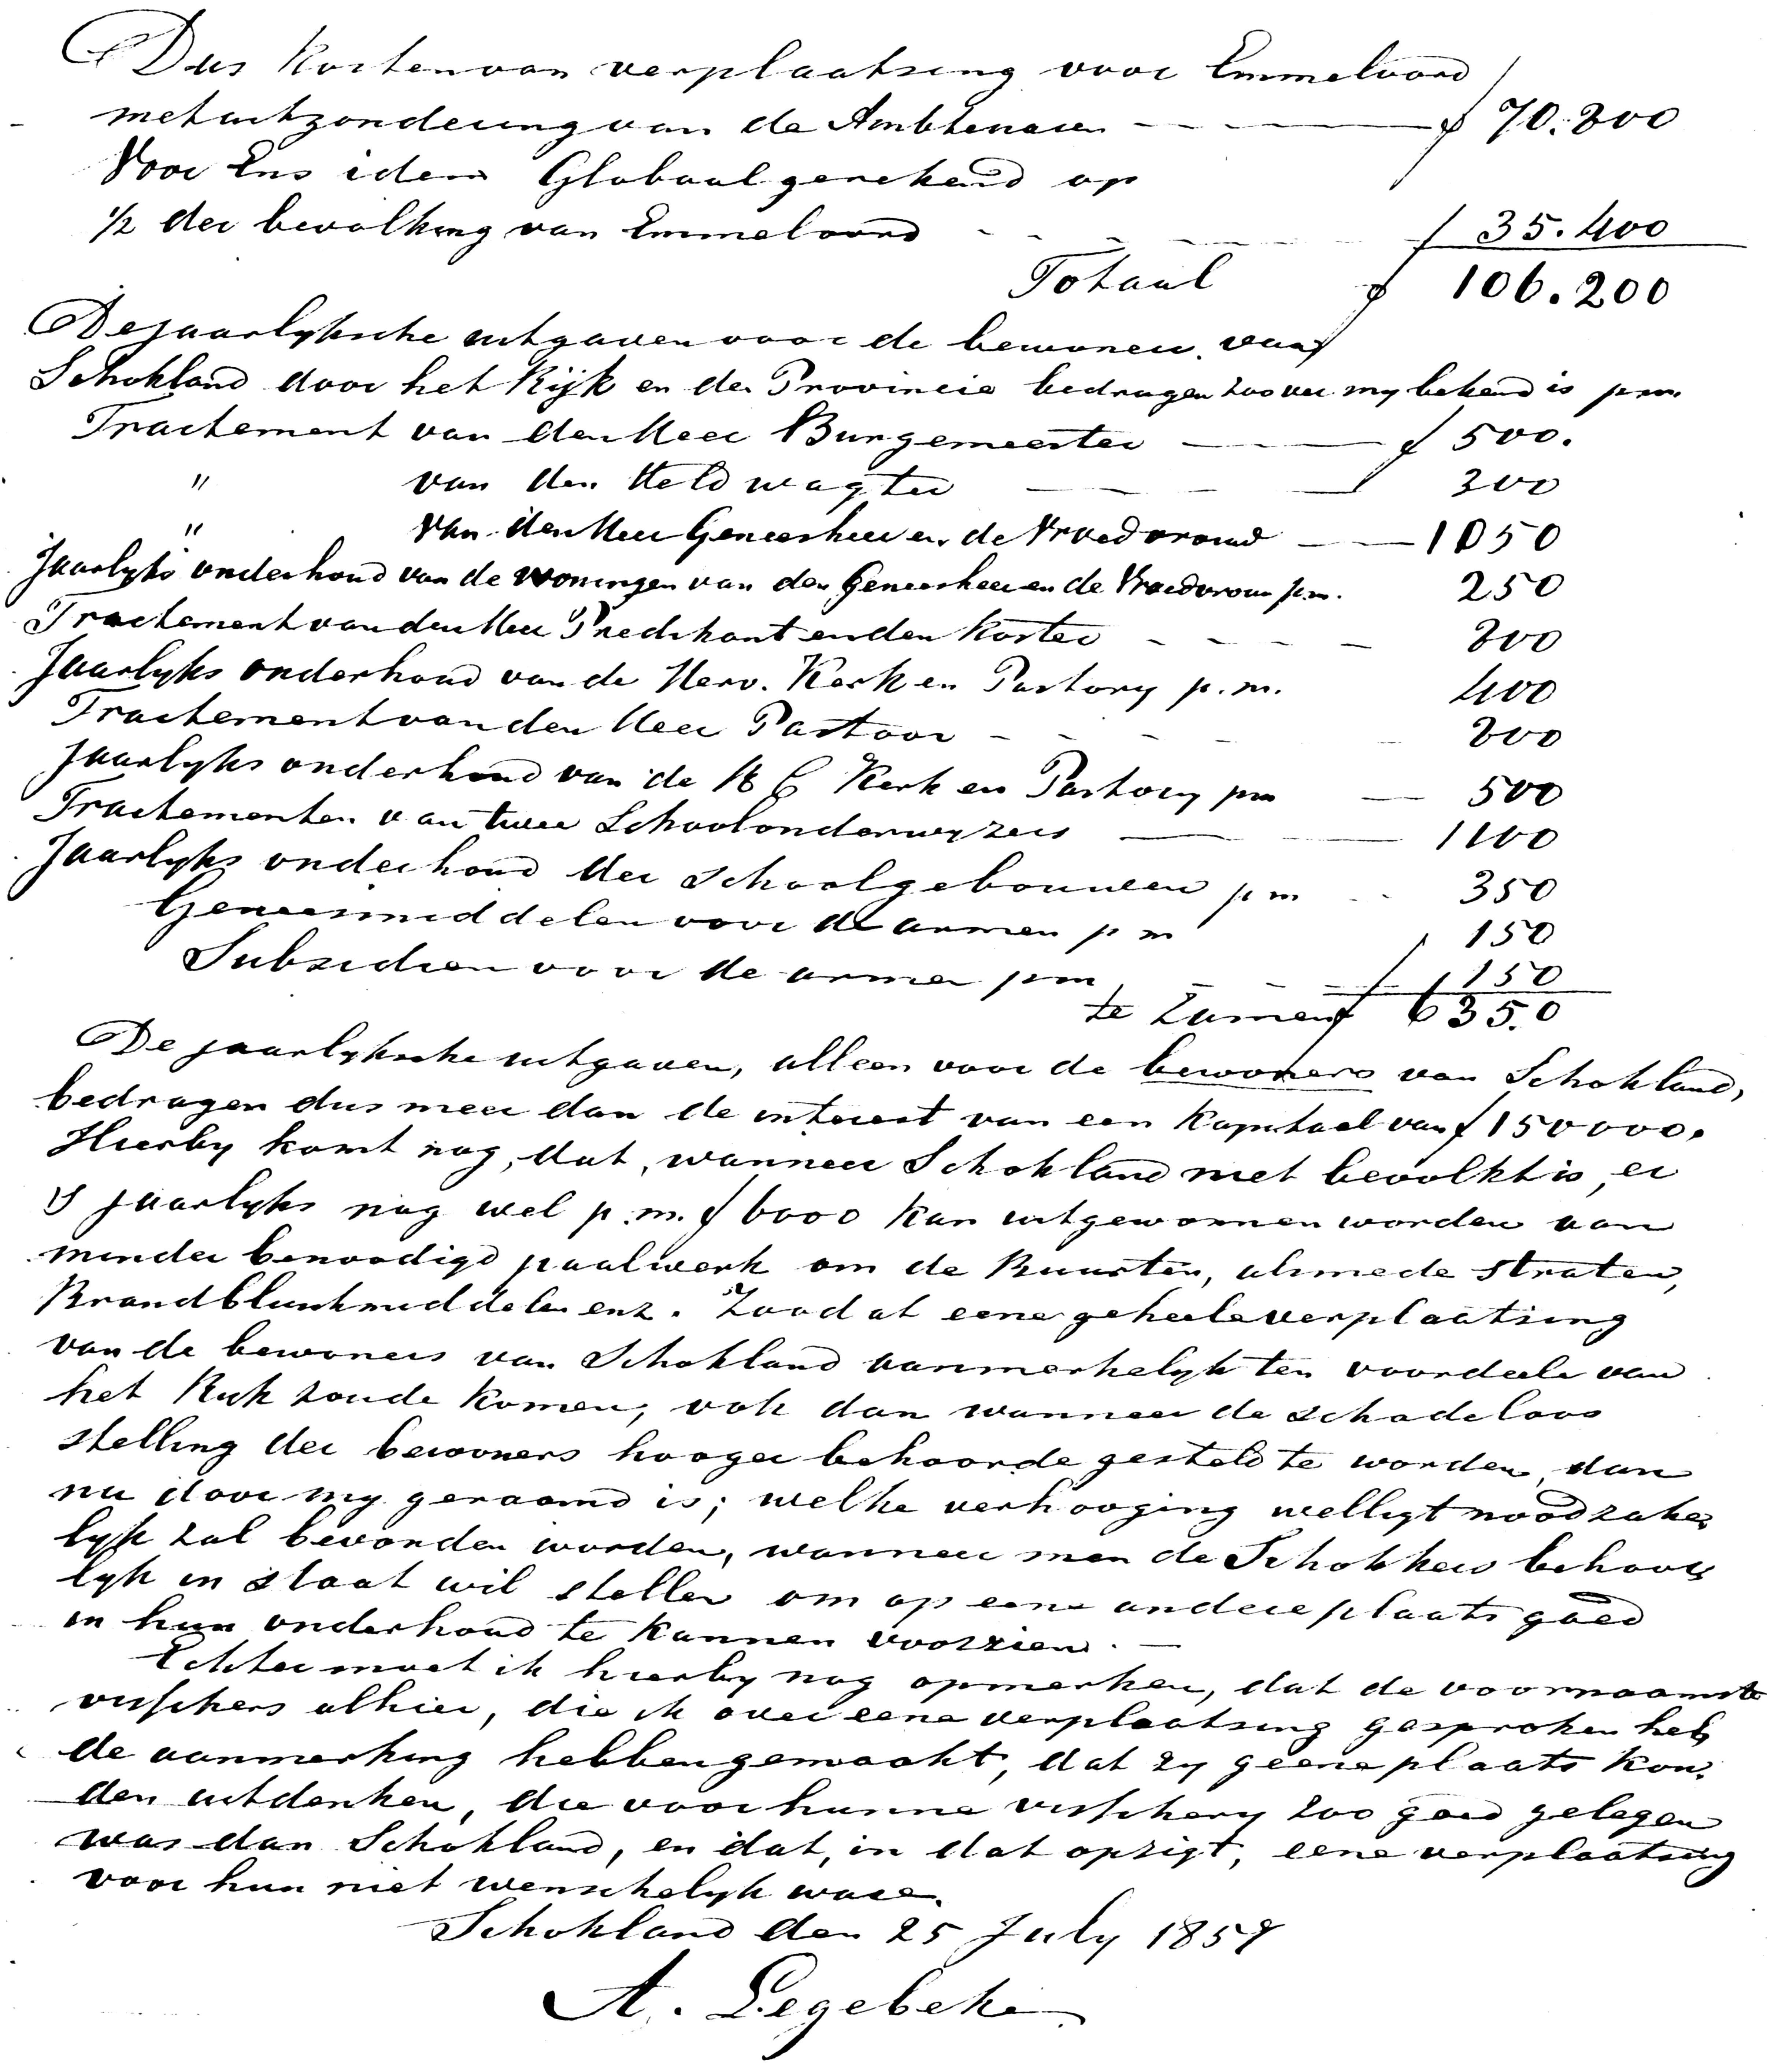 Dus kosten van verplaatsing voor Emmeloord
met uitzondering van de Ambtenaren — — f 70.800
Voor Ens idem Globaal gerekend op
1/2 der bevolking van Emmeloord - - - - f 35.400
Totaal f 106.200
De jaarlyksche uitgaven voor de bewoners van
Schokland door het Rijk en de Provincie bedragen zoover my bekend is p.m.
Tractement van den Heer Burgemeester — — f 500.
" van den Veldwagter — - — 300
" van den Heer Geneesheer en de Vroedvrouw — — 1050
Jaarlyks onderhoud van de woningen van den Geneesheer en de Vroedvrouw p.m. 250
Tractement van den Heer Predikant en den Koster - - - - 800
Jaarlyks onderhoud van de Herv. Kerk en Pastory p.m. 400
Tractement van den Heer Pastoor - - - - 800
Jaarlyks onderhoud van de R C Kerk en Pastory pm — 500
Tractementen van twee Schoolonderwyzers — — 1100
Jaarlyks onderhoud der Schoolgebouwen pm - - 350
Geneesmiddelen voor de armen p m 150
Subsidien voor de armen pm - - = f 150
te Zamen f 6350
De jaarlyksche uitgaven, alleen voor de bewoners van Schokland,
bedragen dus meer dan de interest van een Kapitaal van f 150000.
Hierby komt nog, dat, wanneer Schokland niet bevolkt is, er
's jaarlyks nog wel p.m. f 6000 kan uitgewonnen worden aan
minder benoodigd paalwerk om de Buurten, alsmede straten,
Brandbluschmiddelen enz. Zoodat eene geheele verplaatsing
van de bewoners van Schokland aanmerkelyk ten voordeele van
het Ryk zoude komen, ook dan wanneer de schadeloos
stelling der bewoners hooger behoorde gesteld te worden, dan
nu door my geraamd is; welke verhooging welligt noodzake
lyk zal bevonden worden, wanneer men de Schokkers behoor
lyk in staat wil stellen om op eene andere plaats goed
in hun onderhoud te kunnen voorzien. —
Echter moet ik hierby nog opmerken, dat de voornaamste
visschers alhier, die ik over eene verplaatsing gesproken heb,
de aanmerking hebben gemaakt, dat zy geene plaats kon-
den uitdenken, die voor hunne visschery zoo goed gelegen
was dan Schokland, en dat, in dat opzigt, eene verplaatsing
voor hun niet wenschelyk ware.
Schokland den 25 July 1857
A. Legebeke